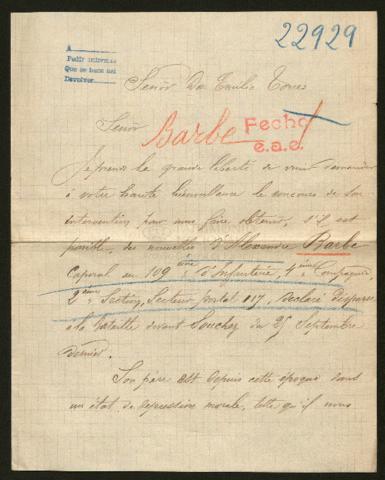 22929
A
Pedir
Que se
Devolver
Señor Don Emilio Torres
Señor
Barbe
Fecho
e.a.e.
Je prends la grande liberté de venir demander
à votre haute bienveillance le concours de son
intervention pour me faire obtenir, s'il est
possible, des nouvelles d'Alexandre Barbe
Caporal au 109ème d'Infanterie, 4ème Compagnie,
2ème Section, Secteur postal 117, déclaré disparu
à la bataille devant Souchez du 25 Septembre
dernier.
Son père est depuis cette époque dans
un état de dépression morale, telle qu'il nous